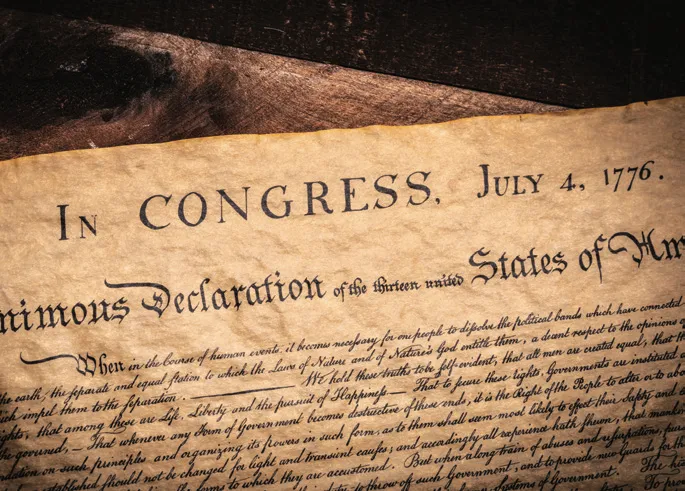 In CONGRESS, July 4, 1776.
nimous Declaration of the thirteen united States of Am
When in the Course of human events, it becomes necessary for one people to dissolve the political bands which have connected
the earth, the separate and equal station to which the Laws of Nature and of Nature's God entitle them, a decent respect to the opinions of
ich impel them to the separation. We hold these truths to be self-evident, that all men are created equal, that th
ights, that among these are Life, Liberty and the pursuit of Happiness. — That to secure these rights, Governments are instituted a
the governed, — That whenever any Form of Government becomes destructive of these ends, it is the Right of the People to alter or to abo
ndation on such principles and organizing its powers in such form, as to them shall seem most likely to effect their Safety and
established should not be changed for light and transient causes; and accordingly all experience hath shewn, that mank
the forms to which they are accustomed. But when a long train of abuses and usurpations, pur
to throw off such Government, and to provide new Guards for th